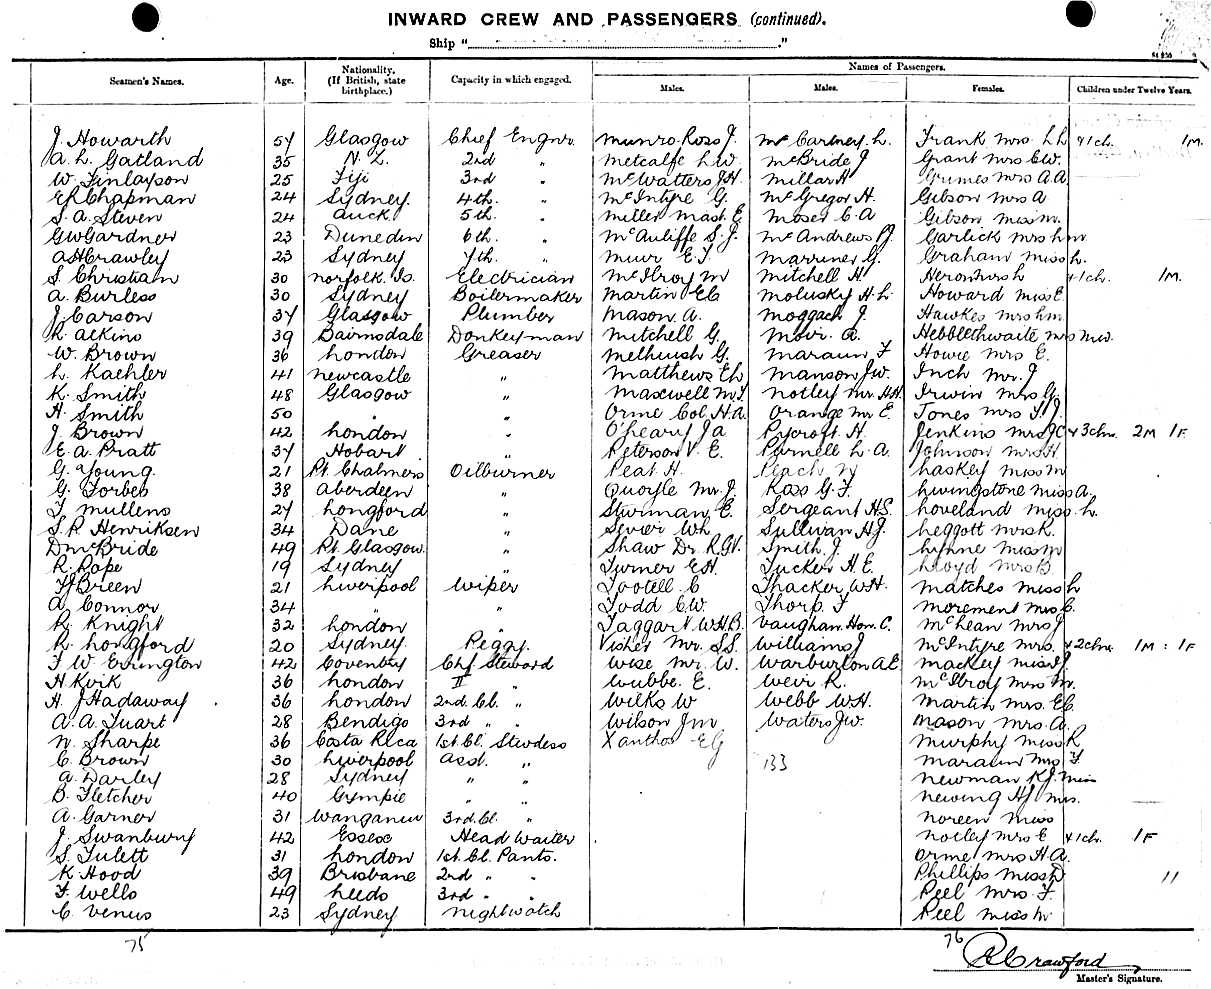 INWARD CREW AND PASSENGERS (continued).
Ship "                    ."
Names of Passengers.
Seamen's Names. Age. Nationality. (If British, state birthplace.) Capacity in which engaged. Males. Males. Females. Children under Twelve Years.
J. Howarth 54 Glasgow Chief Engnr. Munro-Ross J. McCartney L. Frank Mrs L.L. & 1 ch. 1M.
A. L. Gatland 35 N.Z. 2nd " Metcalfe L.W McBride J Grant Mrs C.W.
W. Finlayson 25 Fiji 3rd " McWatters J.H. Millar H Grimes Mrs A.A.
E.R. Chapman 24 Sydney. 4th. " McIntyre G. McGregor H. Gibson Mrs A
S. A. Steven 24 Auck. 5th. " Miller Mast. E Moses C. A Gibson Miss M.
G W Gardner 23 Dunedin 6th. " McAuliffe S. J. McAndrews P.J. Garlick Mrs L.M
A H Crawley 23 Sydney 7th. " Muir E. T. Marriner G. Graham Miss L.
S. Christian 30 Norfolk Is. Electrician McIlroy M Mitchell H. Heron Mrs L & 1 ch. 1M.
A. Burless 30 Sydney Boilermaker Martin E C Molusky H. L. Howard Miss E.
J. Carson 34 Glasgow Plumber Mason. A. Moggach J. Hawkes Mrs L.M.
R. Atkins 39 Bairnsdale Donkeyman Mitchell G. Moir. A. Hebblethwaite Mrs M.W.
W. Brown 36 London Greaser Melhuish G. Maraun F Howie Mrs E.
L. Kaehler 41 Newcastle " Matthews E.L Manson J.W. Inch Mr. J
K. Smith 48 Glasgow " Maxwell M.T. Notley Mr. H.H. Irwin Mrs G.
H. Smith 50 " " Orme Col. H.A. Orange Mr. E. Jones Mrs T.J.
J. Brown 42 London " O'Leary J A Pycroft H. Jenkins Mrs J.C. & 3 chn. 2M 1F
E. A. Pratt 34 Hobart " Peterson V. E. Parnell L. A. Johnson Mrs H
G. Young. 21 Pt. Chalmers Oilburner Peat H. Peach Laskey Miss M
G. Forbes 38 Aberdeen " Quoyle Mr. J. Ross G. F. Livingstone Miss A.
T. Mullens 24 Longford " Sturman, E. Sergeant H.S. Loveland Miss L.
S. P. Henriksen 34 Dane " Sevier W.L. Sullivan H.J. Leggott Mrs R.
D McBride 49 Pt. Glasgow. " Shaw Dr. R.G.V. Smith J. Lynne Miss M
R. Pope 19 Sydney " Turner E.H. Tucker H. E. Lloyd Mrs B.
F J Breen 21 Liverpool Wiper Tootell C Thacker W.H. Matches Miss L
A. Connor 34 " " Todd C.W. Thorp. F Morement Miss C.
R. Knight 32 London " Taggart W.H.B. Vaughan Hon. C. McLean Mrs J
R. Longford 20 Sydney. Peggy. Visher Mr. S.S. Williams J McIntyre Mrs. & 2 chn. 1M : 1F
F. W. Errington 42 Coventry Chf Steward Wise Mr. W. Warburton A E. Mackley Miss J
H. Kvik 36 London II " Wubbe. E. Weir R. McIlroy Mrs M.
H. J Hadaway. 36 London 2nd. Cl. " Wilks W Webb W.H. Martin Mrs E.C.
A. A. Tuart 28 Bendigo 3rd " " Wilson J M Waters J.W. Mason Mrs. A.
N. Sharpe 36 Costa Rica 1st. Cl. Stwdess Xanthos E G Murphy Miss R
C. Brown 30 Liverpool Asst. " 133 Maraun Mrs F.
A. Darley 28 Sydney " " Newman K.J. Miss
B. Fletcher 40 Gympie " " Newing H.J Mrs.
A. Garner 31 Wanganui 3rd. Cl. " Noreen Miss
J. Swanbury 42 Essex Head Waiter Notley Mrs E & 1 ch. 1F
S. Tulett 31 London 1st. Cl. Pants. Orme Mrs H. A.
K. Hood 39 Brisbane 2nd " " Phillips Miss D 11
F. Wells 49 Leeds 3rd " " Peel Mrs. F.
C. Venus 23 Sydney Nightwatch Peel Miss M.
75 76
Crawford
Master's Signature.